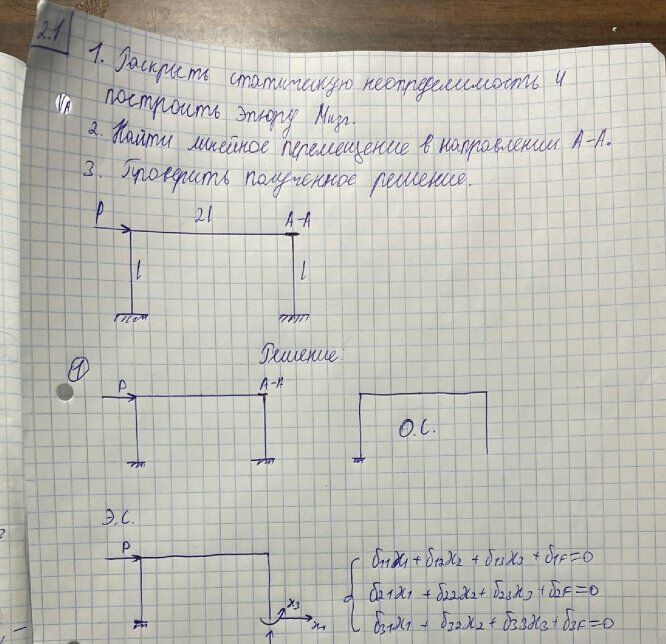 2.1
1. Раскрыть статическую неопределимость и
построить эпюру Mизг.
VA
2. Найти линейное перемещение в направлении A-A.
3. Проверить полученное решение.
P
2l
A-A
l
l
Решение:
1
P
A-A
О.С.
Э.С.
P
x3
x1
δ11x1 + δ12x2 + δ13x3 + δ1F=0
δ21x1 + δ22x2 + δ23x3 + δ2F=0
δ31x1 + δ32x2 + δ33x3 + δ3F=0